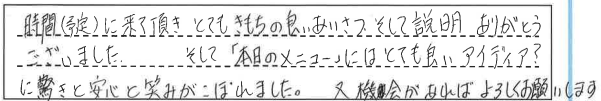 時間(予定)に来て頂き とても きもちの良いあいさつ そして説明 ありがとう
ございました。 そして「本日のメニュー」には とても良い アイディア?
に驚きと安心と笑みがこぼれました。 又機会があれば よろしくお願いします